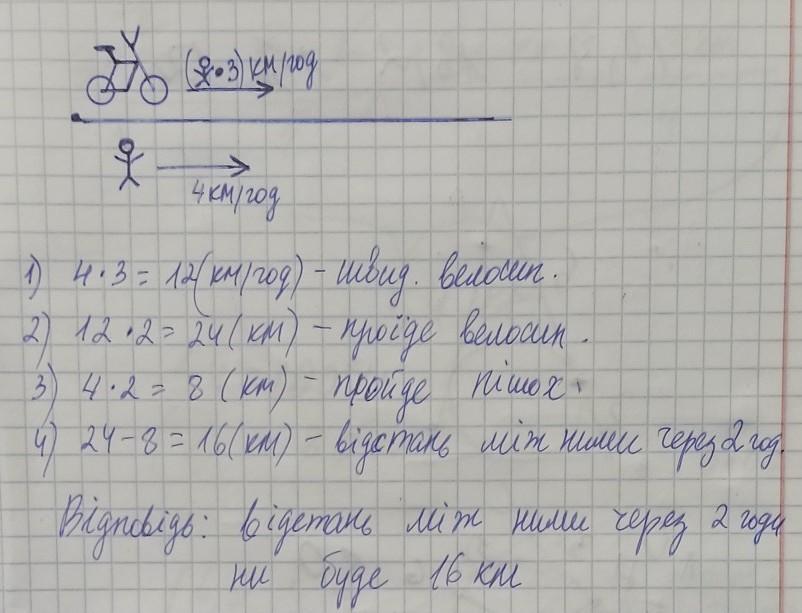 ( · 3) км/год
4 км/год
1) 4 · 3 = 12 (км/год) – швид. велосип.
2) 12 · 2 = 24 (км) – проїде велосип.
3) 4 · 2 = 8 (км) – пройде пішох.
4) 24 – 8 = 16 (км) – відстань між ними через 2 год.
Відповідь: відстань між ними через 2 годи
ни буде 16 км